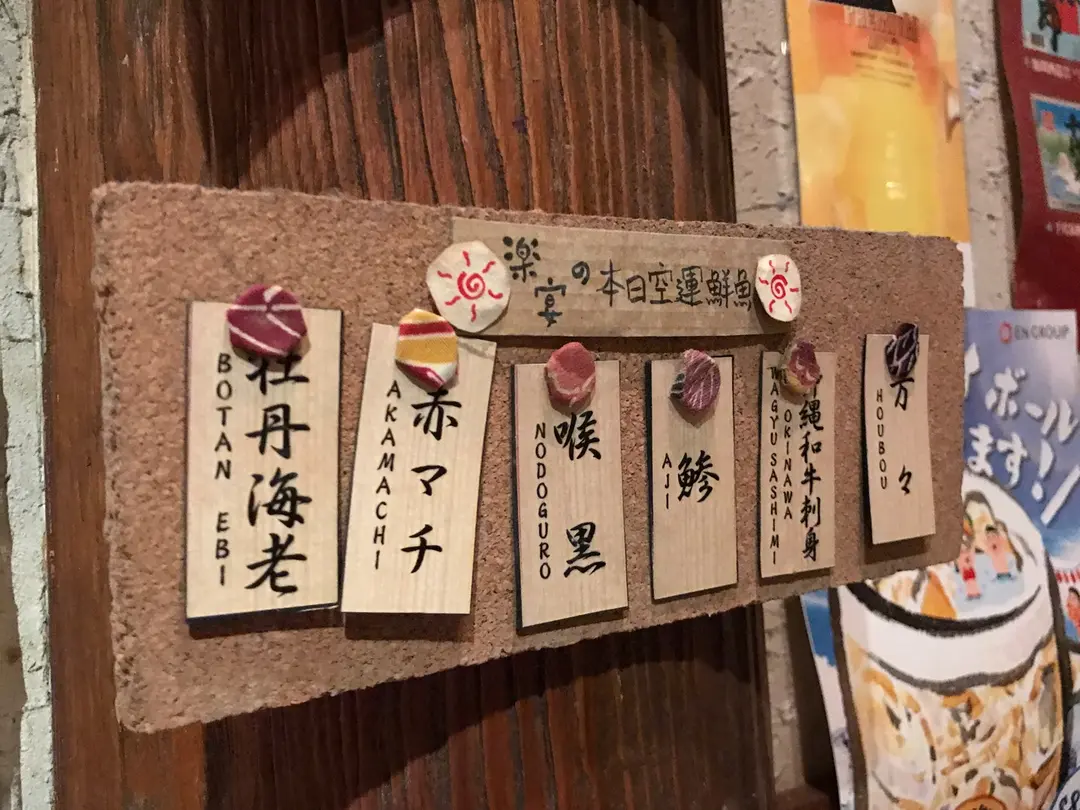 楽宴の本日空運鮮魚
BOTAN EBI
牡丹海老
AKAMACHI
赤マチ
NODOGURO
喉黒
AJI
鯵
WAGYU SASHIMI
OKINAWA
縄和牛刺身
HOUBOU
方々
EN GROUP
ボール
ます!